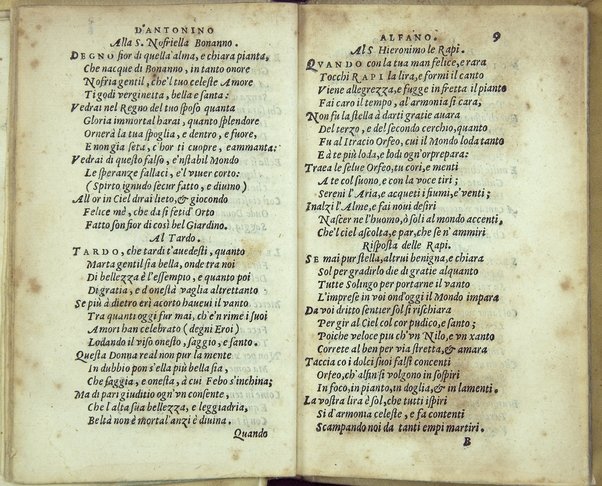 D'ANTONINO
Alla S. Nofriella Bonanno.
DEGNO fior di quella alma, e chiara pianta,
Che nacque di Bonanno, in tanto onore
Nofria gentil, che'l tuo celeste Amore
Ti godi verginetta, bella e santa:
Vedrai nel Regno del tuo sposo quanta
Gloria immortal harai, quanto splendore
Ornerà la tua spoglia, e dentro, e fuore,
E non gia seta, c'hor ti cuopre, e ammanta:
Vedrai di questo falso, e'nstabil Mondo
Le speranze fallaci, e'l viuer corto:
(Spirto ignudo secur fatto, e diuino)
All'or in Ciel dirai lieto, & giocondo
Felice mè, che da sì fetid'Orto
Fatto son fior di così bel Giardino.
Al Tardo.
TARDO, che tardi t'auedesti, quanto
Marta gentil sia bella, onde tra noi
Di bellezza è l'essempio, e quanto poi
Di gratia, e d'onestà vaglia altrettanto
Se più à dietro eri acorto haueui il vanto
Tra quanti oggi fur mai, ch'e'n rime i suoi
Amori han celebrato (degni Eroi)
Lodando il viso onesto, saggio, e santo.
Questa Donna real non pur la mente
In dubbio pon s'ella più bella sia,
Che saggia, e onesta, à cui Febo s'inchina;
Ma di pari giuditio ogn'vn consente,
Che l'alta sua bellezza, e leggiadria,
Beltà non è mortal'anzi è diuina.
Quando
ALFANO. 9
Al S. Hieronimo le Rapi.
QVANDO con la tua man felice, e rara
Tocchi RAPI la lira, e formi il canto
Viene allegrezza, e fugge in fretta il pianto
Fai caro il tempo, al'armonia sì cara,
Non fù la stella à darti gratie auara
Del terzo, e del secondo cerchio, quanto
Fu al Itracio Orfeo, cui il Mondo loda tanto
E à te più loda, e lodi ogn'or prepara:
Traea le selue Orfeo, tu cori, e menti
A te col suono, e con la voce tiri;
Sereni l'Aria, e acqueti i fiumi, e'venti;
Inalzi l'Alme, e fai noui desiri
Nascer ne l'huomo, ò soli al mondo accenti,
Che'l ciel ascolta, e par, che se n'ammiri
Risposta delle Rapi.
SE mai pur stella, altrui benigna, e chiara
Sol per gradirlo die di gratie alquanto
Tutte Solingo per portarne il vanto
L'imprese in voi ond'oggi il Mondo impara
Da voi dritto sentier sol si rischiara
Per gir al Ciel col cor pudico, e santo;
Poiche veloce piu ch'vn Nilo, e vn xanto
Correte al ben per via stretta, & amara
Taccia co i dolci suoi falsi concenti
Orfeo, ch'alfin si volgono in sospiri
In foco, in pianto, in doglia, & in lamenti.
La vostra lira è sol, che tutti ispiri
Si d'armonia celeste, e fa contenti
Scampando noi da tanti empi martiri.
B